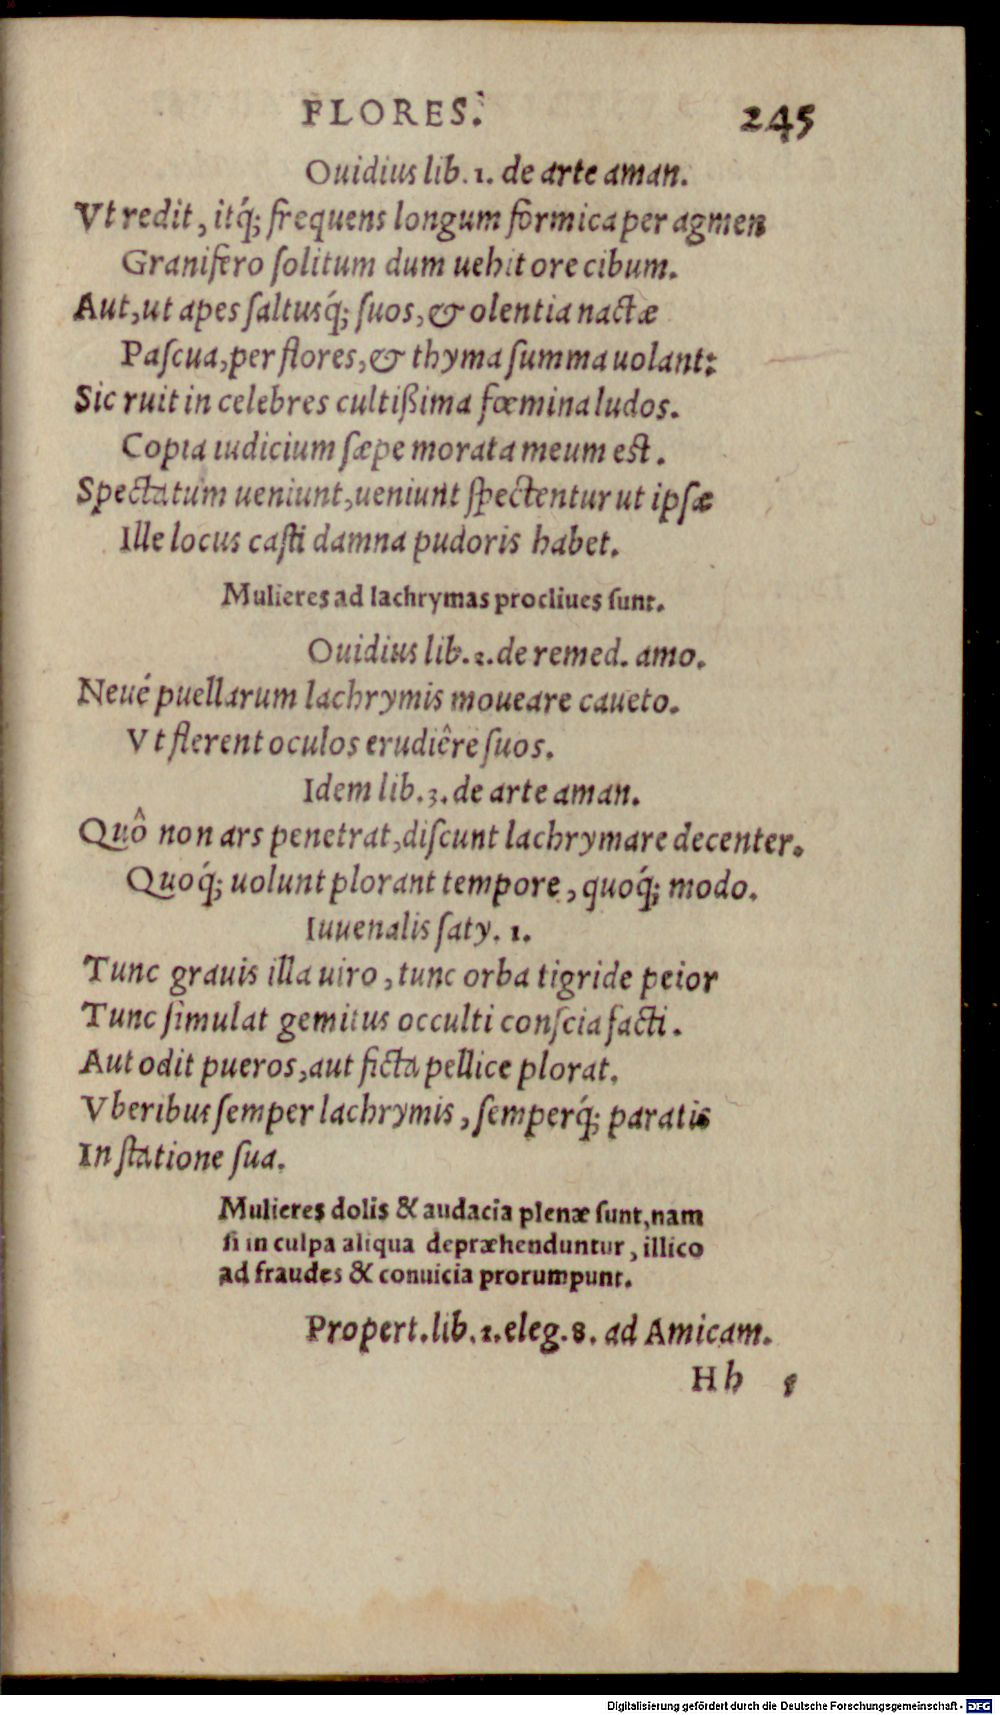 FLORES. 245
Ouidius lib. 1. de arte aman.
Vt redit, itq́; frequens longum formica per agmen
Granifero ſolitum dum uehit ore cibum.
Aut, ut apes ſaltusq́; ſuos, & olentia nactæ
Paſcua, per flores, & thyma ſumma uolant:
Sic ruit in celebres cultißima fœmina ludos.
Copia iudicium ſæpe morata meum est.
Spectatum ueniunt, ueniunt ſpectentur ut ipſæ
Ille locus caſti damna pudoris habet.
Mulieres ad lachrymas procliues ſunt.
Ouidius lib. 2. de remed. amo.
Neué puellarum lachrymis moueare caueto.
Vt flerent oculos erudiêre ſuos.
Idem lib. 3. de arte aman.
Quô non ars penetrat, diſcunt lachrymare decenter.
Quoq́; uolunt plorant tempore, quoq́; modo.
Iuuenalis ſaty. 1.
Tunc grauis illa uiro, tunc orba tigride peior
Tunc ſimulat gemitus occulti conſcia facti.
Aut odit pueros, aut ficta pellice plorat.
Vberibus ſemper lachrymis, ſemperq́; paratis
In ſtatione ſua.
Mulieres dolis & audacia plenæ ſunt, nam
ſi in culpa aliqua depræhenduntur, illico
ad fraudes & conuicia prorumpunt.
Propert. lib. 1. eleg. 8. ad Amicam.
Hh
Digitalisierung gefördert durch die Deutsche Forschungsgemeinschaft - DFG